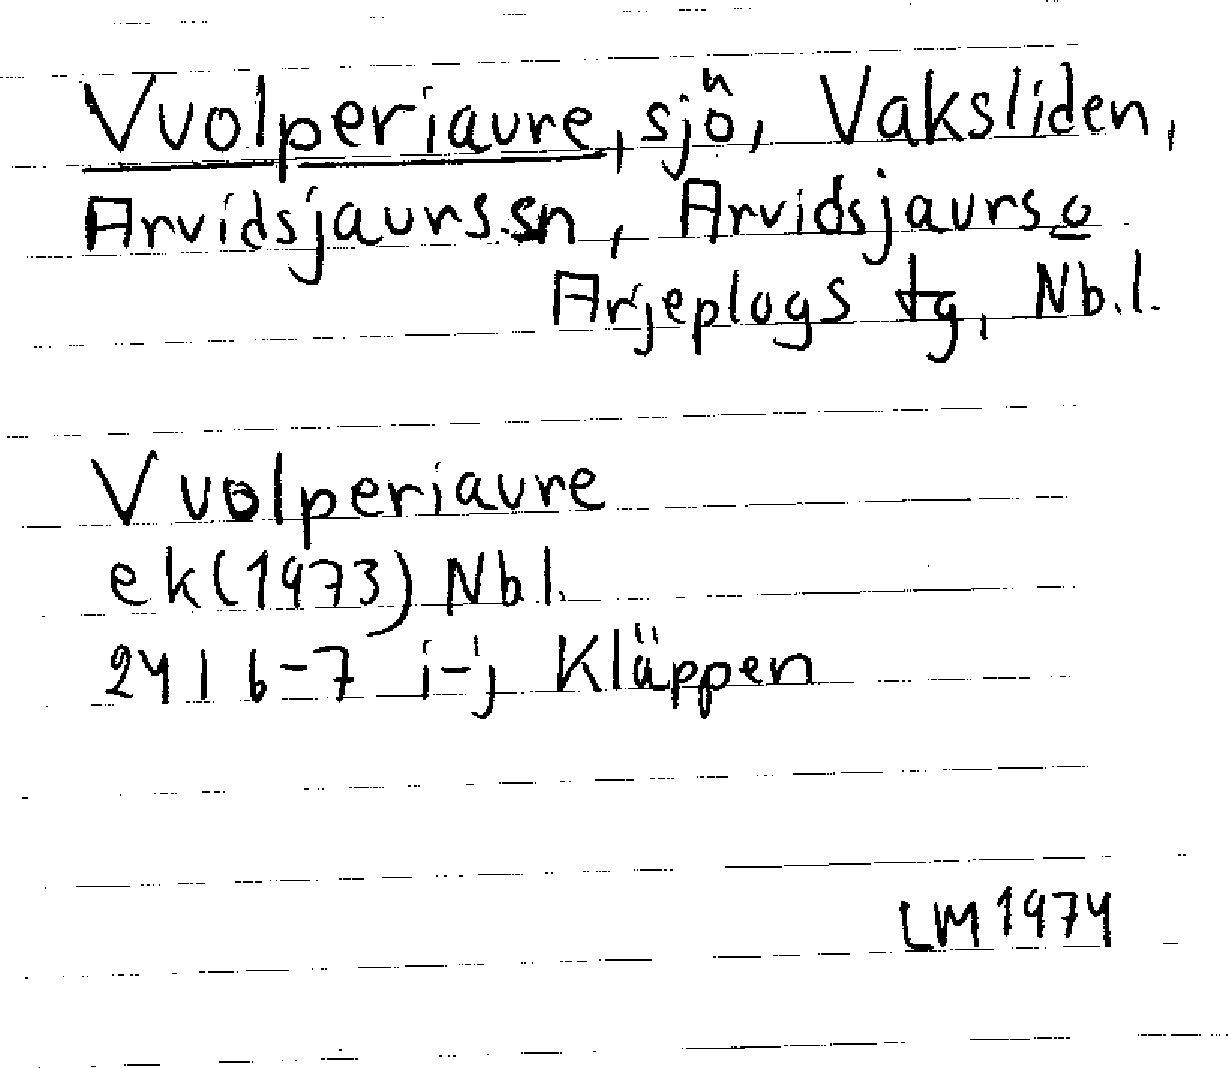 Vuolperiaure, sjö, Vaksliden,
Arvidsjaurs sn, Arvidsjaurs o
Arjeplogs tg, Nb.l.
Vuolperiaure
ek (1973) Nbl.
24 I 6-7 i-j Kläppen
LM 1974